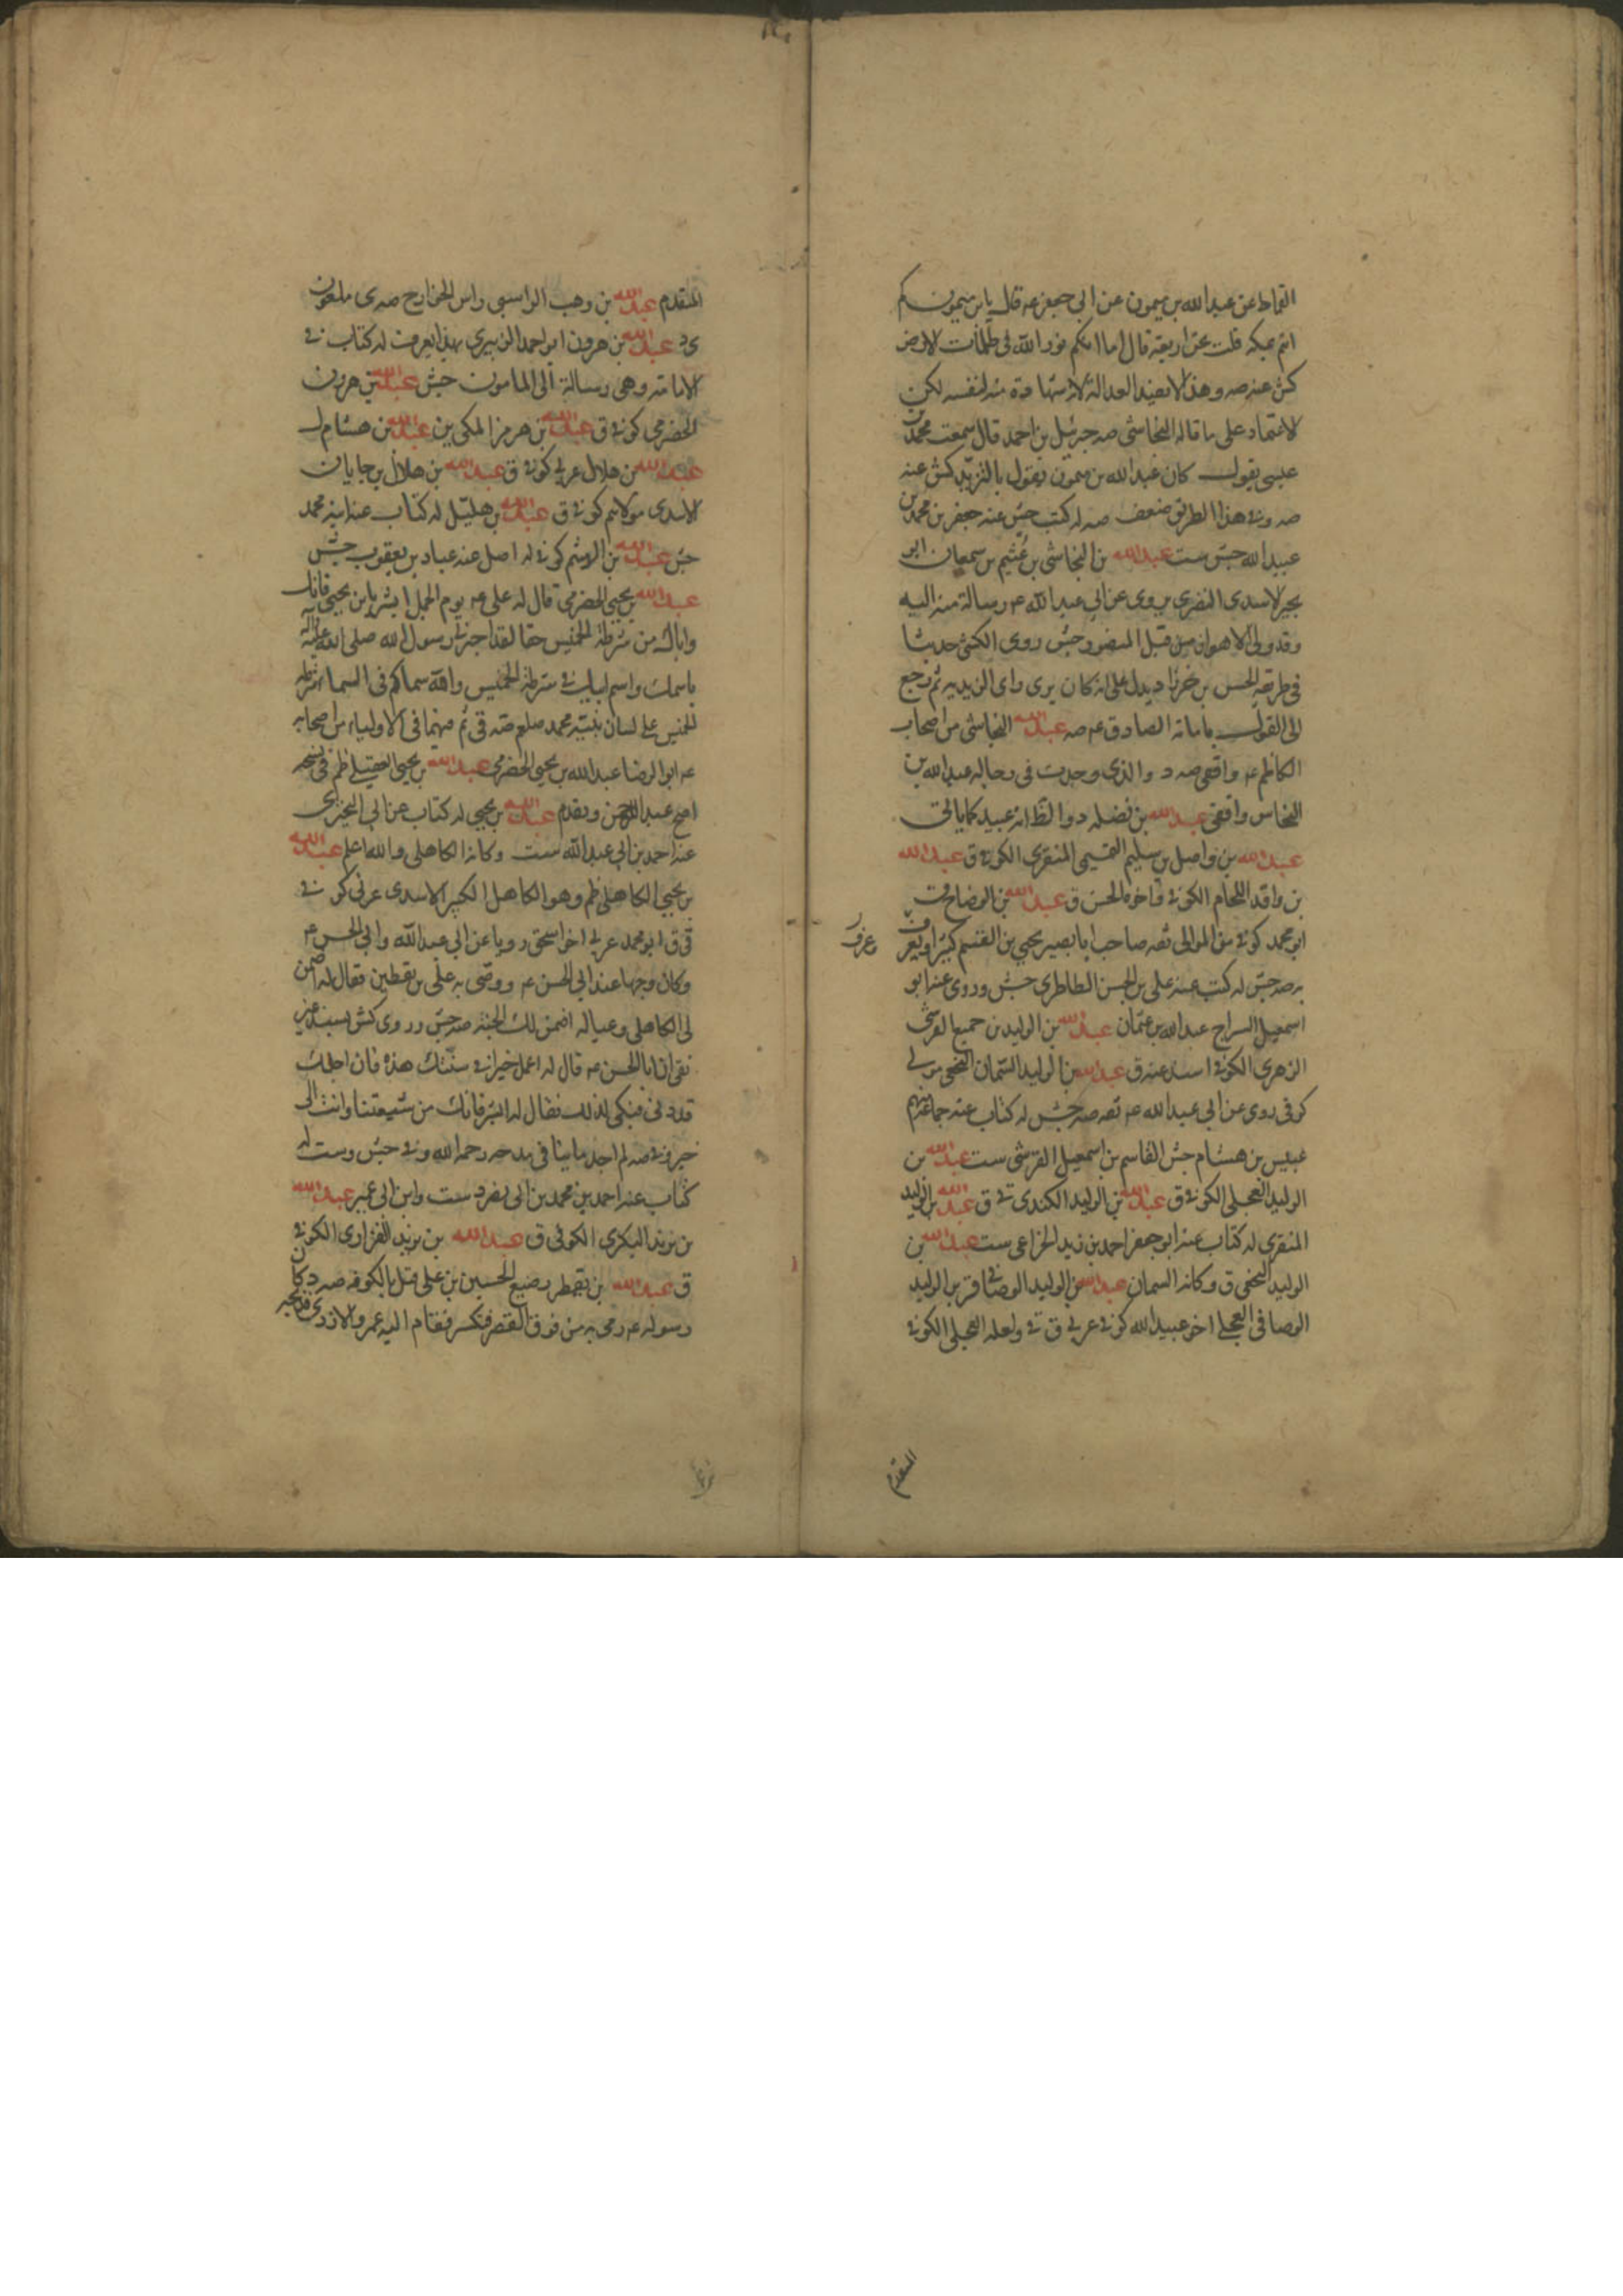 القماط عن عبدالله بن ميمون عن ابى جعفر عه قال يابن ميمون كم
انتم بمكه قلت نحن اربعة قال اما انكم نور الله فى ظلمات الارض
كش عنه صه وهذا لا يفيد العدالة لانه شهادة منه لنفسه لكن
الاعتماد على ما قاله النجاشى صه جبرئيل بن احمد قال سمعت محمد بن
عيسى يقول كان عبدالله بن ميمون يقول بالتزيد كش عنه
صه وفى هذا الطريق ضعف صه له كتب جش عنه جعفر بن محمد بن
عبيدالله جش ست عبدالله بن النجاشى بن عثيم بن سمعان ابو
بجير الاسدى النصرى يروى عن ابى عبدالله عه رسالة منه اليه
وقد ولى الاهواز من قبل المنصور جش روى الكشى حديثا
فى طريقه الحسن بن خرزاد يدل على انه كان يرى راى الزيديه ثم رجع
الى القول بامامة الصادق عه صه عبدالله النجاشى من اصحاب
الكاظم عه واقفى صه د والذى وجدت فى رجاله عبدالله بن
النحاس واقفى عبدالله بن فضله د والظ انه عبيد كما ياتى
عبدالله بن واصل بن سليم التميمى المنقرى الكوفى ق عبدالله
بن واقد اللحام الكوفى واخوه الحسن ق عبدالله بن الوضاح ثقة
ابو محمد كوفى من الموالى ثقه صاحب ابا بصير يحيى بن القسم كثيرا ويعرف
وعرف
به صه جش له كتب عنه على بن الحسن الطاطرى جش وروى عنه ابو
اسمعيل السراج عبدالله بن عثمان عبدالله بن الوليد بن جميع القرشى
الزهرى الكوفى اسند عنه ق عبدالله بن الوليد السمان النخعى مولى
كوفى روى عن ابى عبدالله عه ثقه صه جش له كتاب عنه جماعة منهم
عبيس بن هشام جش القاسم بن اسمعيل القرشى ست عبدالله بن
الوليد العجلى الكوفى ق عبدالله بن الوليد الكندى فى ق عبدالله بن الوليد
المنقرى له كتاب عنه ابو جعفر احمد بن زيد الخزاعى ست عبدالله بن
الوليد النخعى ق وكانه السمان عبدالله بن الوليد الوصافى قر بن الوليد
الوصافى العجلى اخو عبيدالله كوفى عربى ق فى ولعله العجلى الكوفى
المتقدم
المتقدم عبدالله بن وهب الراسبى راس الخوارج صه ى ملعون
ى د عبدالله بن هرون ابو احمد الزبيرى بهذا يعرف له كتاب فى
الامامة وهى رسالة الى المامون جش عبدالله بن هرون
الحضرمى كوفى ق عبدالله بن هرمز المكى ين عبدالله بن هشام ل
عبدالله بن هلال عربى كوفى ق عبدالله بن هلال بن جابان
الاسدى مولاهم كوفى ق عبدالله بن هليل له كتاب عنه ابنه محمد
جش عبدالله بن الهيثم كوفى له اصل عنه عباد بن يعقوب جش
عبدالله بن يحيى الحضرمى قال له على عه يوم الجمل ابشر يا بن يحيى فانك
واباك من شرطة الخميس حقا لقد اخبرنى رسول الله صلى الله عليه واله
باسمك واسم ابيك فى شرطة الخميس والله سماكم فى السما شرطة
الخميس على لسان نبيه محمد صلعم صه قى ثم فيهما فى الاولياء من اصحابه
عه ابو الرضا عبدالله بن يحيى الحضرمى عبدالله بن يحيى العقيلى ظم فى نسخه
اصح عبدالرحمن وتقدم عبدالله بن يحيى له كتاب عن ابى البخترى
عنه احمد بن ابى عبدالله ست وكانه الكاهلى والله اعلم عبدالله
بن يحيى الكاهلى ظم وهو الكاهل الكبير الاسدى عربى كوفى
قى ق ابو محمد عربى اخو اسحق رويا عن ابى عبدالله وابى الحسن عه
وكان وجها عند ابى الحسن عه ووصى به على بن يقطين فقال له اضمن
لى الكاهلى وعياله اضمن لك الجنه صه جش وروى كش بسند غير
نقى ان ابا الحسن عه قال له اعمل خيرا فى سنتك هذه فان اجلك
قد دنى فبكى لذلك فقال له ابشر فانك من شيعتنا وانت الى
خير وفى صه لم اجد ما ينافى مدحه رحمه الله وفى جش وست له
كتاب عنه احمد بن محمد بن ابى نصر د ست وابن ابى عمير عبدالله
بن يزيد البكرى الكوفى ق عبدالله بن يزيد الفزارى الكوفى
ق عبدالله بن يقطر رضيع الحسين بن على قتل بالكوفه صه د كان
رسوله عه رمى به من فوق القصر فتكسر فقام اليه عمرو الازدى